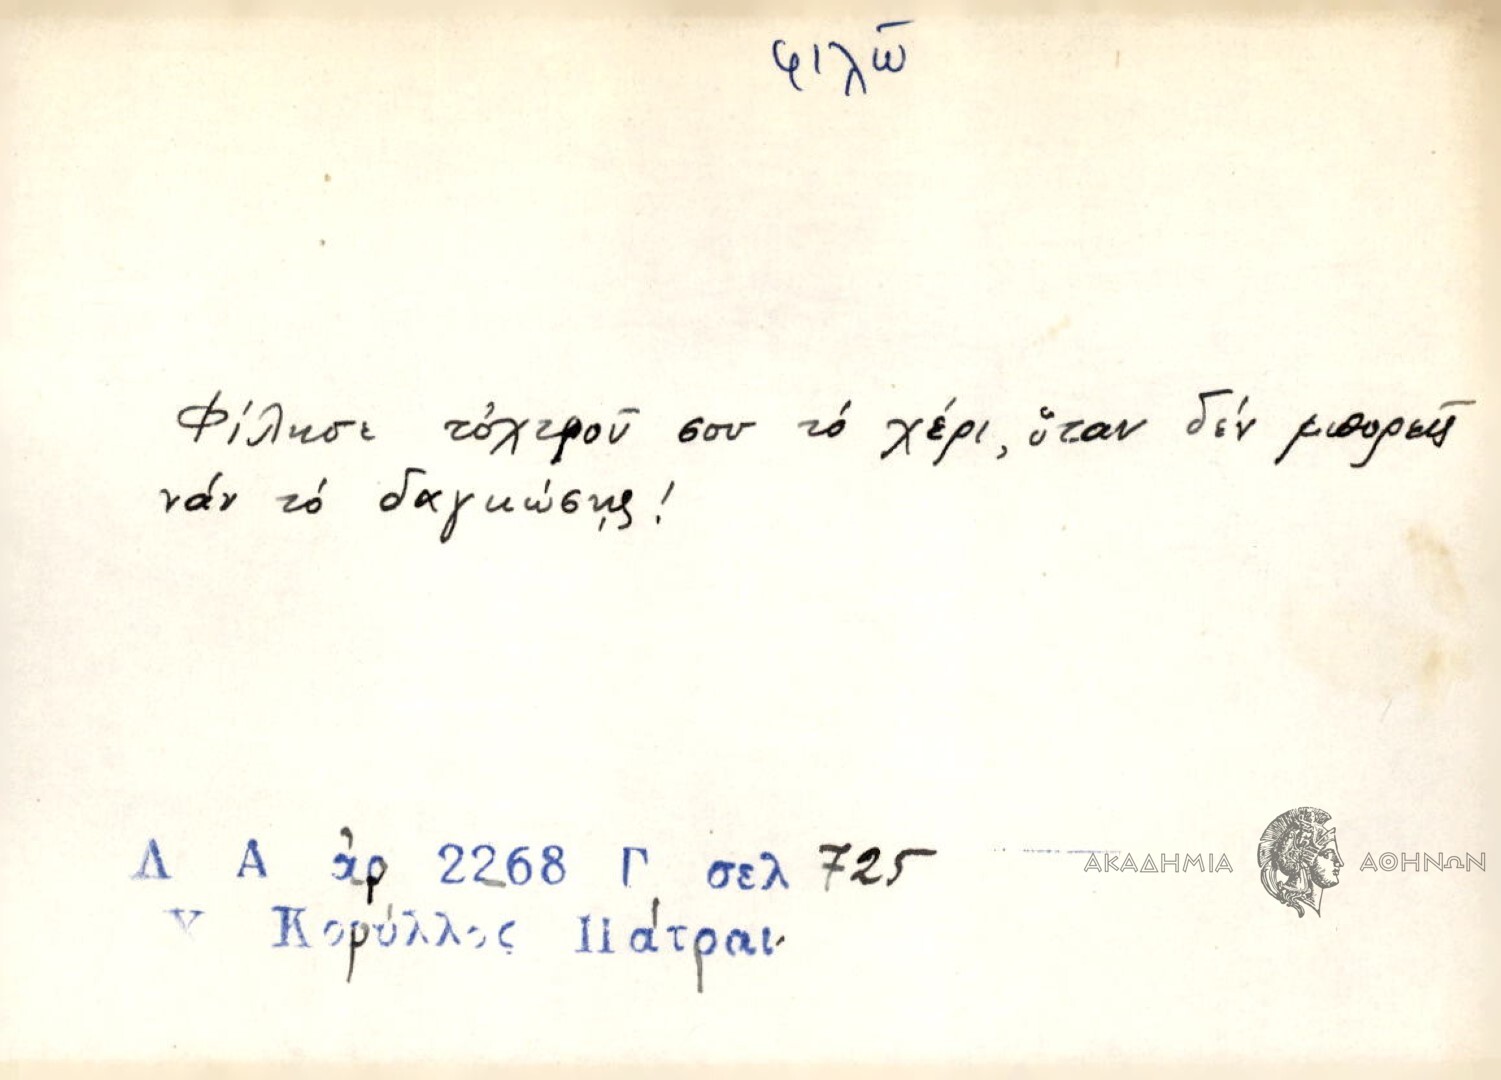 φιλῶ
Φίλησε τὀχτροῦ σου τό χέρι, ὅταν δέν μπορεῖς
νάν τό δαγκώσῃς!
Λ Α ἀρ 2268 Γ σελ 725
Χ Κορύλλος Πάτραι
ΑΚΑΔΗΜΙΑ ΑΘΗΝΩΝ